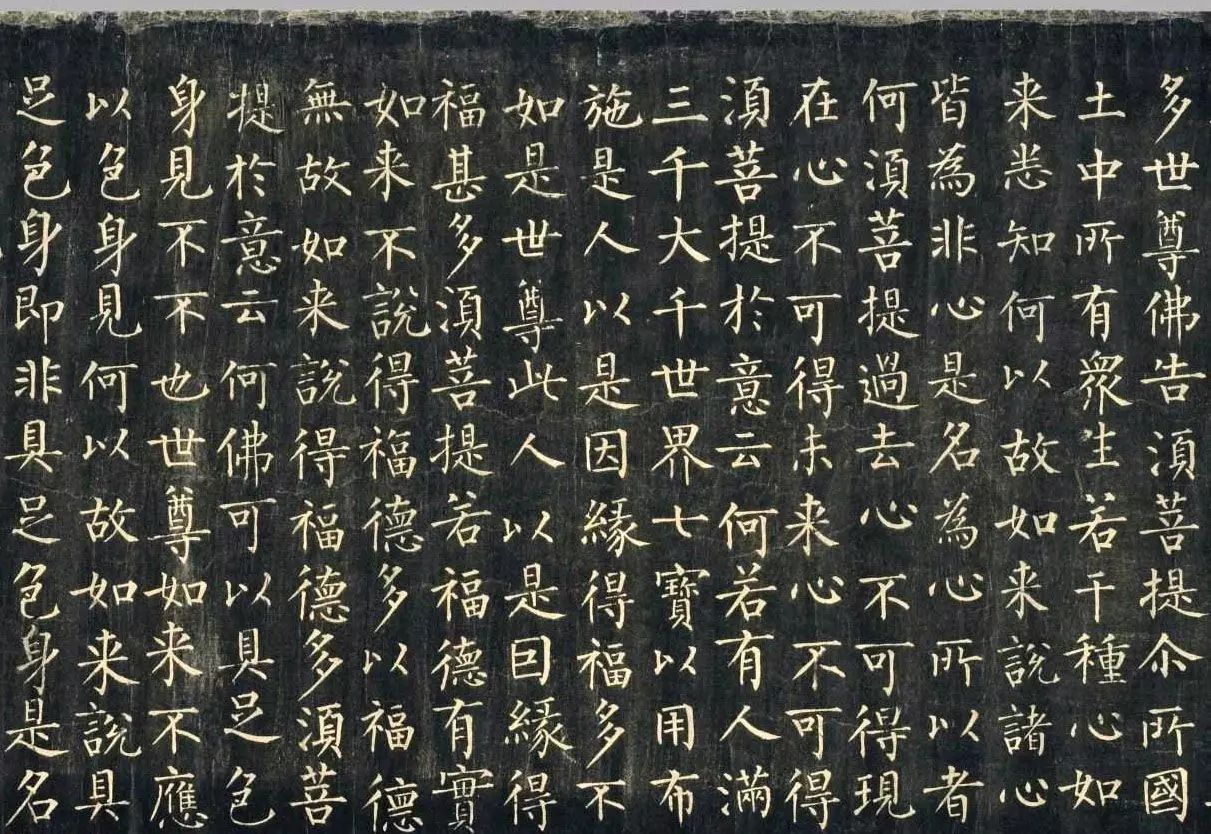 多世尊佛告須菩提尒所國
土中所有衆生若干種心如
来悉知何以故如来說諸心
皆為非心是名為心所以者
何須菩提過去心不可得現
在心不可得未来心不可得
須菩提於意云何若有人滿
三千大千世界七寶以用布
施是人以是因緣得福多不
如是世尊此人以是因緣得
福甚多須菩提若福德有實
如来不說得福德多以福德
無故如来說得福德多須菩
提於意云何佛可以具足色
身見不不也世尊如来不應
以色身見何以故如来說具
足色身即非具足色身是名